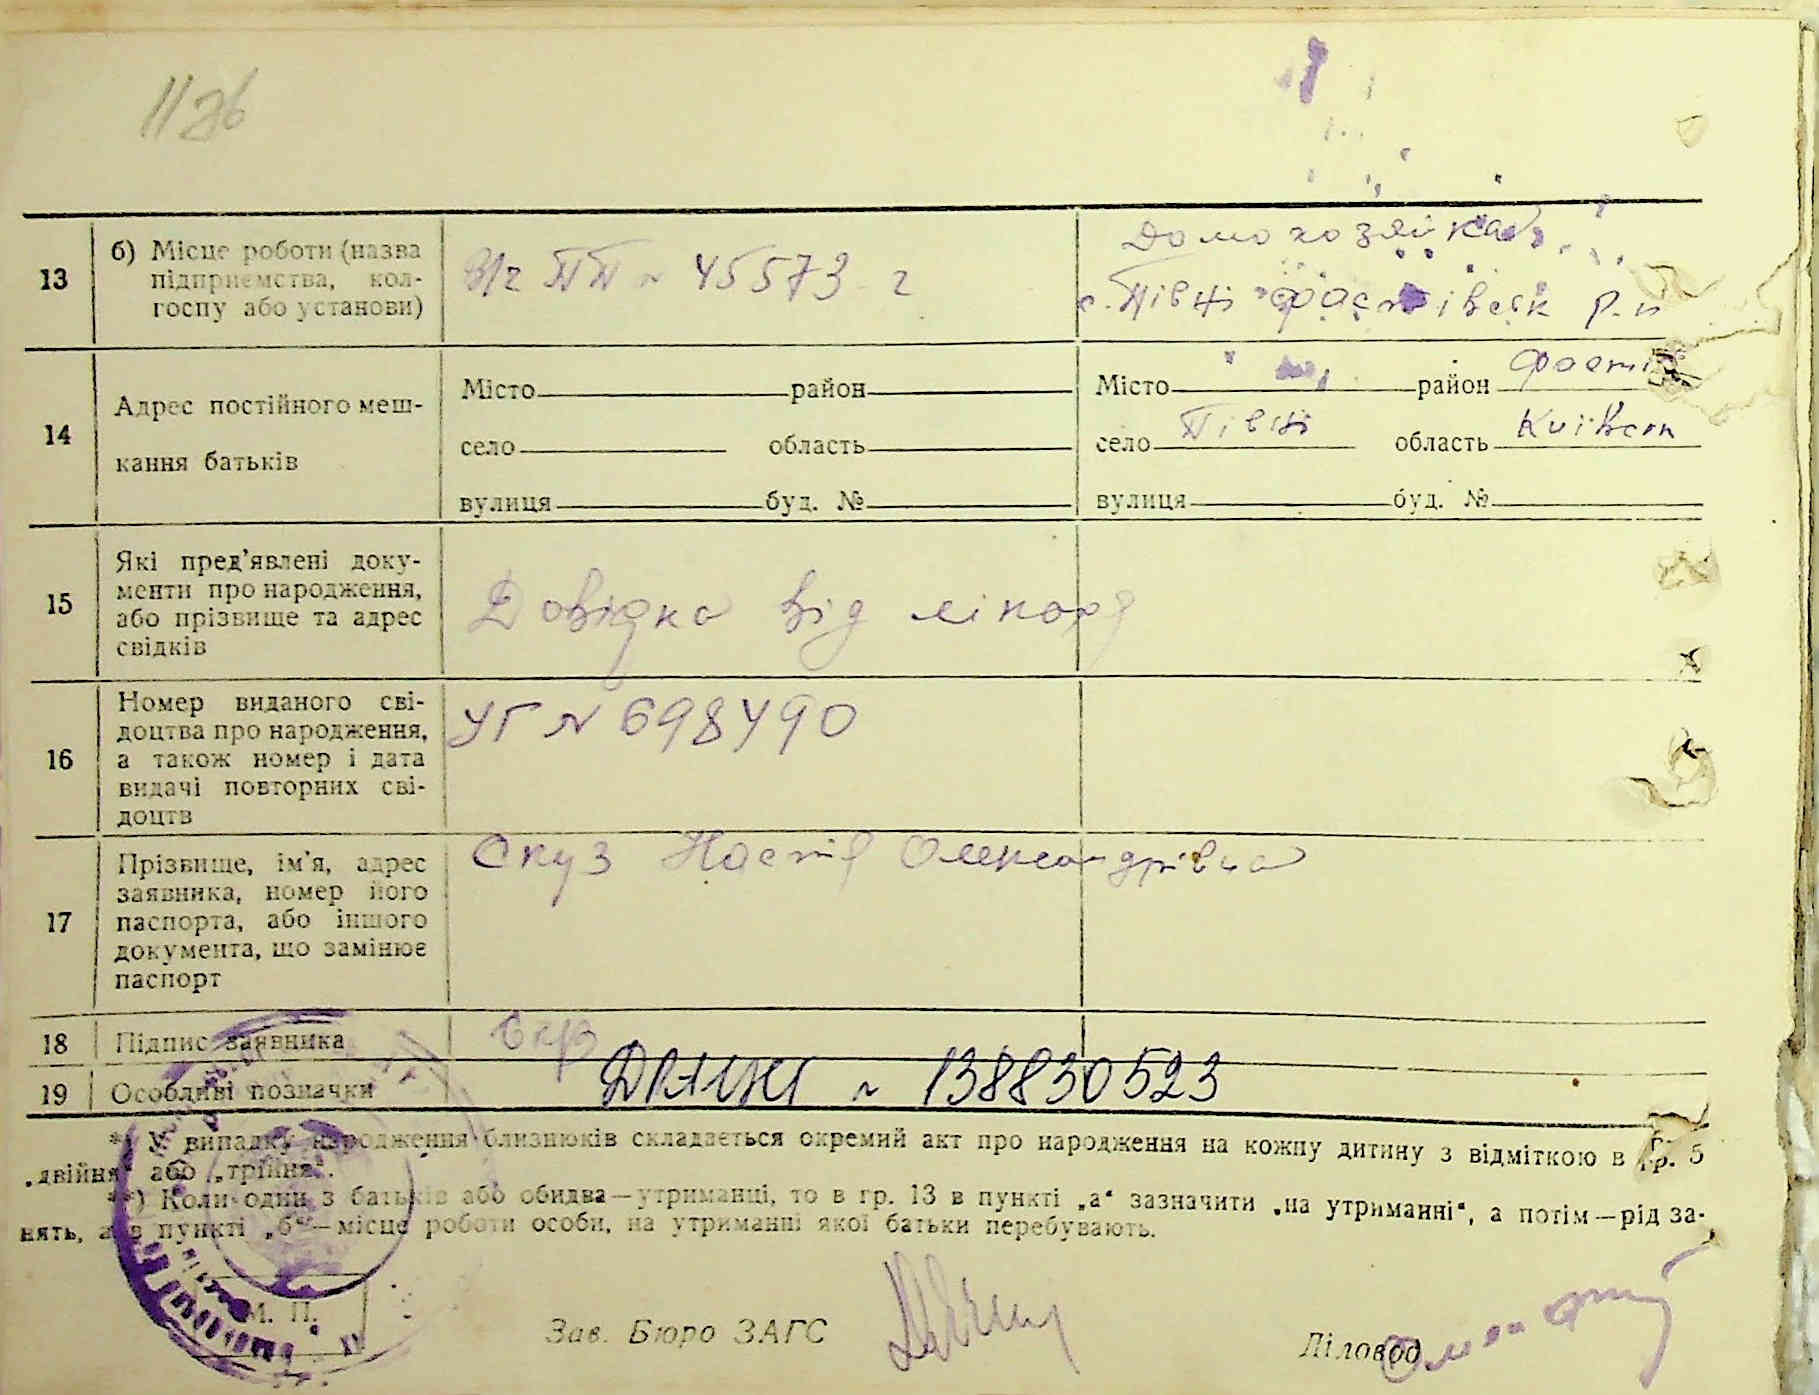 13 б) Місце роботи (назва підприємства, колгоспу або установи) В/ч ПП № 45573 г Домохозяйка
с. Півні Фастівськ р-н
14 Адрес постійного мешкання батьків
Місто район Місто район Фаст
село область село Півні область Київськ
вулиця буд. № вулиця буд. №
15 Які пред'явлені доку-
менти про народження,
або прізвище та адрес
свідків
Довідка від лікаря
16 Номер виданого сві-
доцтва про народження,
а також номер і дата
видачі повторних сві-
доцтв
УГ № 698490
17 Прізвище, ім'я, адрес
заявника, номер його
паспорта, або іншого
документа, що замінює
паспорт
Скуз Настя Олександрівна
18 Підпис заявника
19 Особливі позначки № 138830523
*) У випадку народження близнюків складається окремий акт про народження на кожну дитину з відміткою в гр. 5
„двійня“ або „трійня“.
**) Коли один з батьків або обидва—утриманці, то в гр. 13 в пункті „а“ зазначити „на утриманні“, а потім—рід за-
нять, а в пункті „б“—місце роботи особи, на утриманні якої батьки перебувають.
М. П.
Зав. Бюро ЗАГС Діловод